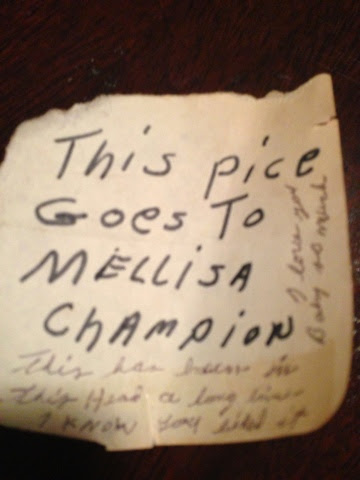 This pice
Goes To
MELLISA
ChAMpioN
This has been in
this Head a long time
I KNOW you liked it
I love you
Baby so much